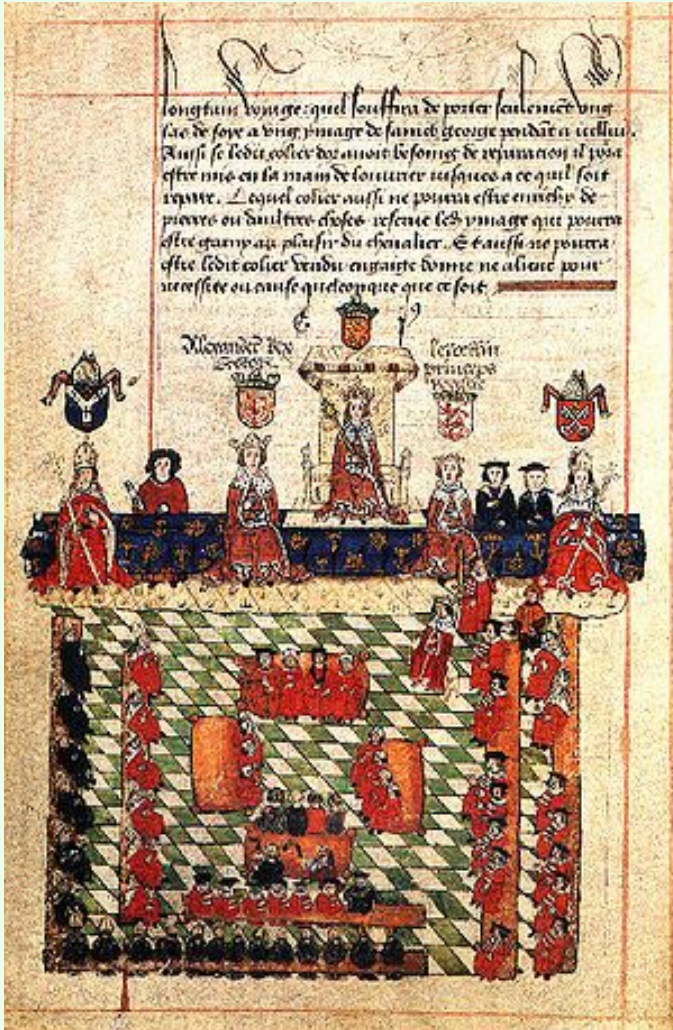 longtain voyage: quel souffira de porter seulemēt vng
lac de soye a vng ymage de sainct george pendāt a icellui.
Aussi se ledit colier dor auoit besoing de reparacion il pora
estre mis en la main de louurier iusques a ce quil soit
repare. Lequel colier aussi ne pourra estre enrichy de
pierres ou daultres choses reserue led ymage que pourra
estre garny au plaisir du cheualier. Et aussi ne pourra
estre ledit colier vendu engaige donne ne aliene pour
necessite ou cause quelconque que ce soit
Alexander Rex
princeps